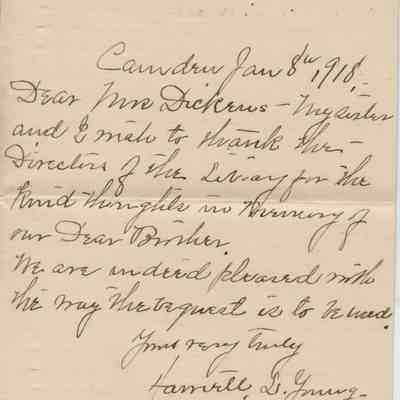 Camden Jan 8th, 1918.
Dear Mrs Dickens - My sister
and I wish to thank the
Directors of the Library for the
kind thoughts in memory of
our Dear Brother.
We are indeed pleased with
the way the bequest is to be used.
Yours very truly
Harriett D. Young